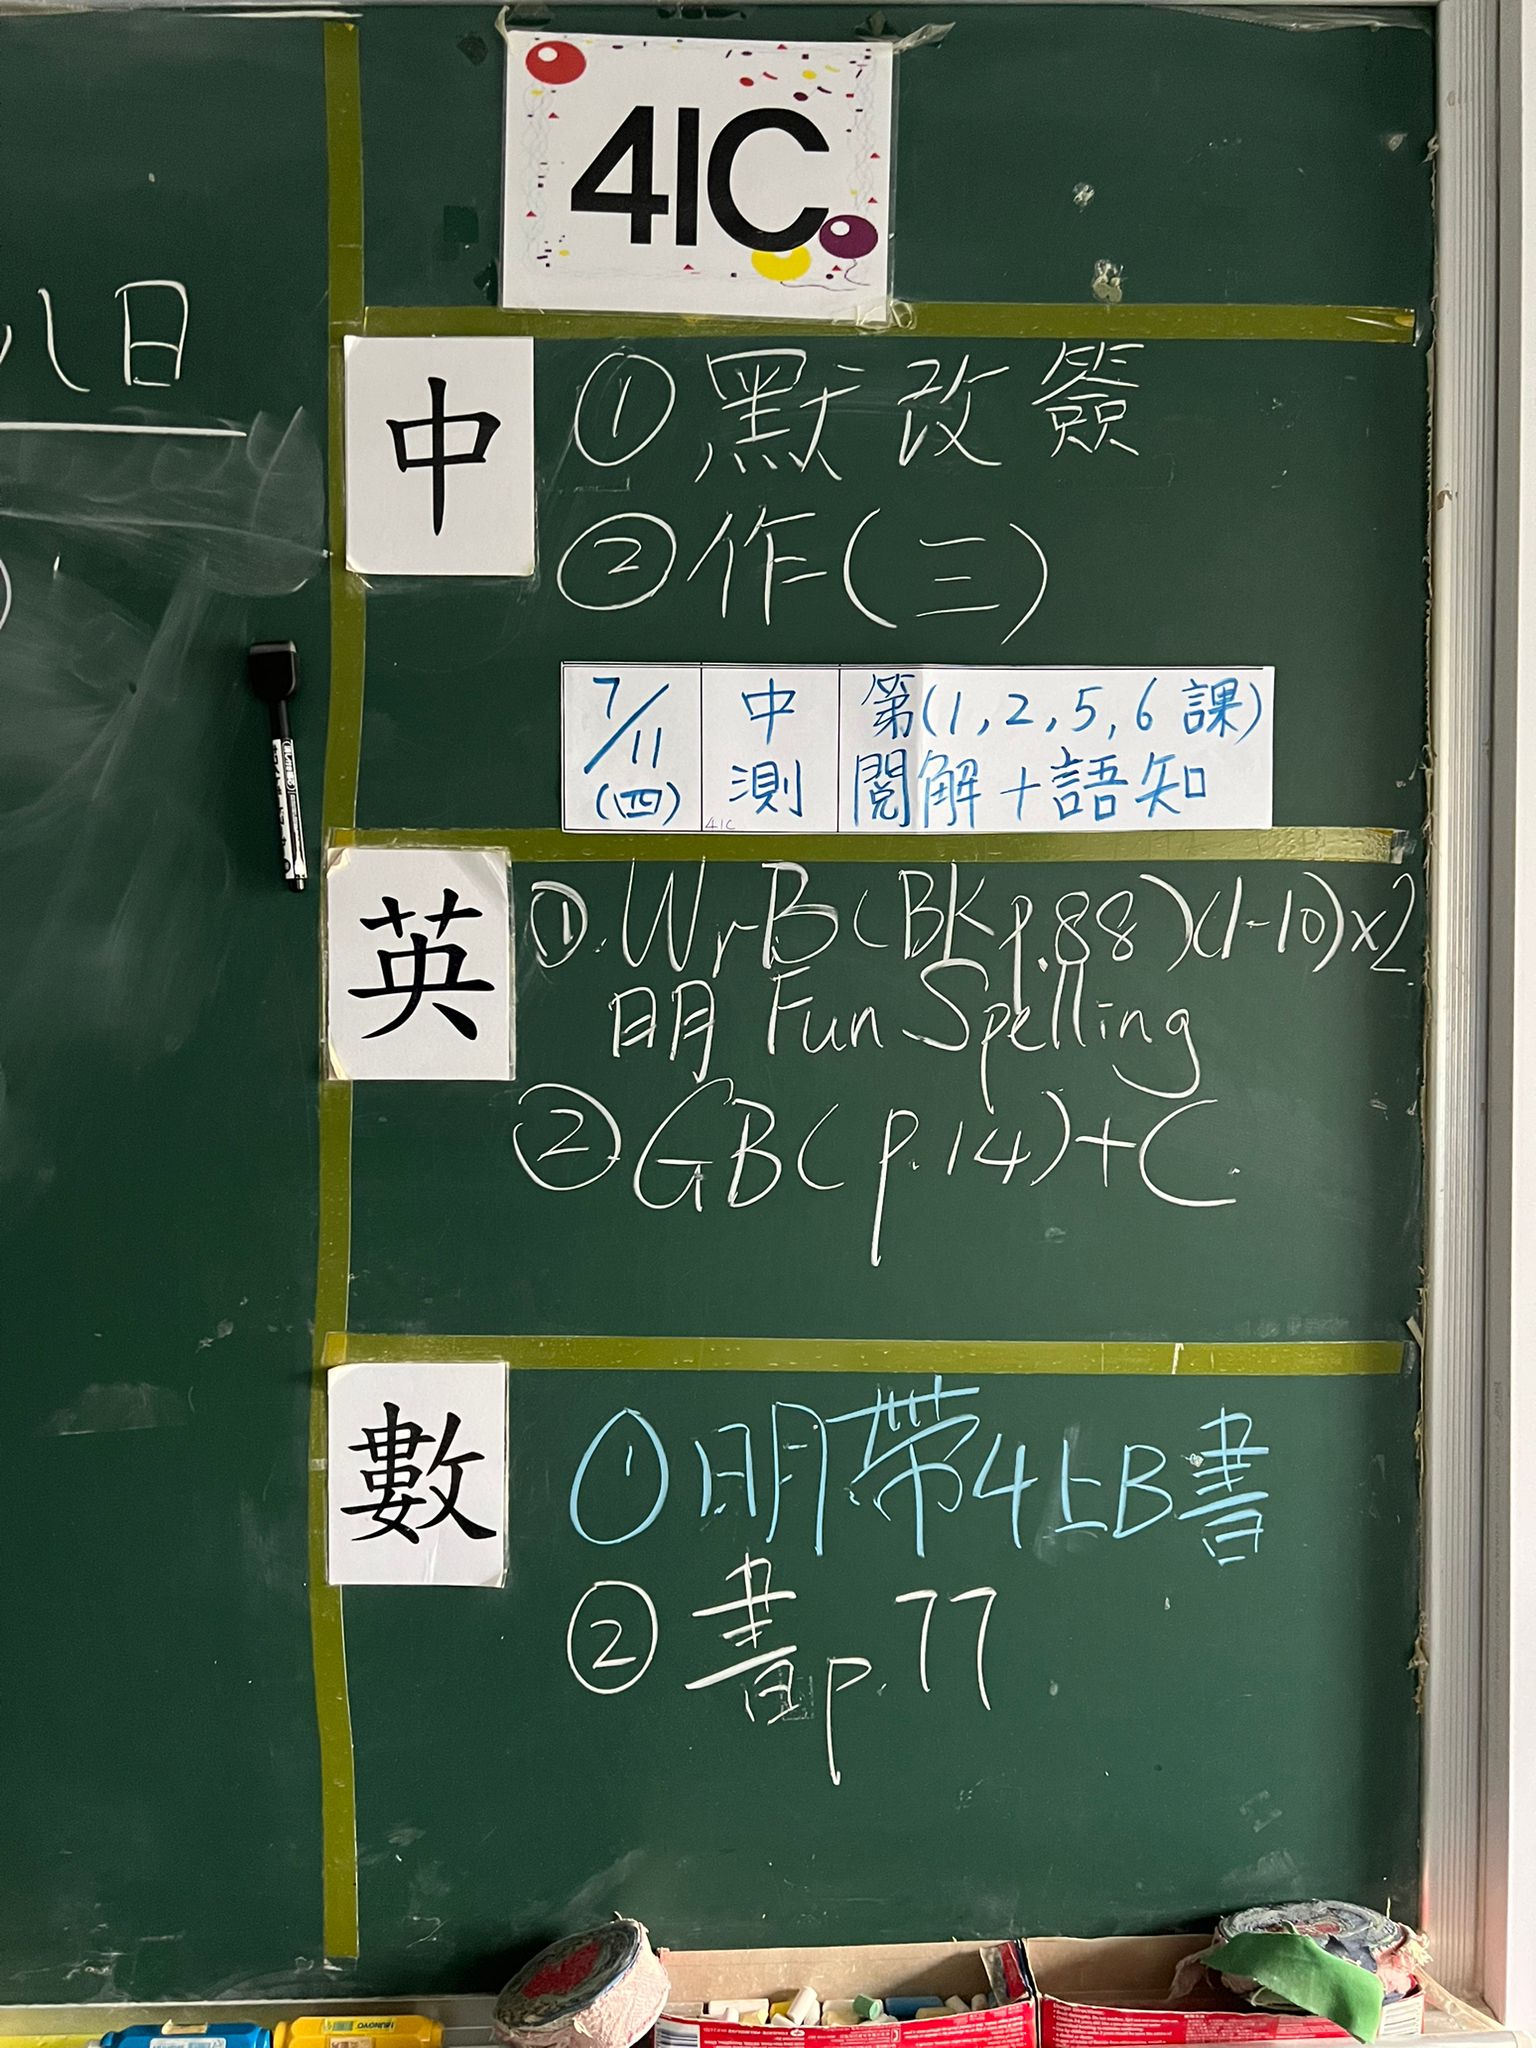 41C
八日
中
①默改簽
②作(三)
7/11 (四)
中測
41C
第(1,2,5,6課)
閱解+語知
英
①.WrB(BK p.88)(1-10)x2
明 Fun Spelling
②GB(p.14)+C.
數
①明帶4上B書
②書p.77